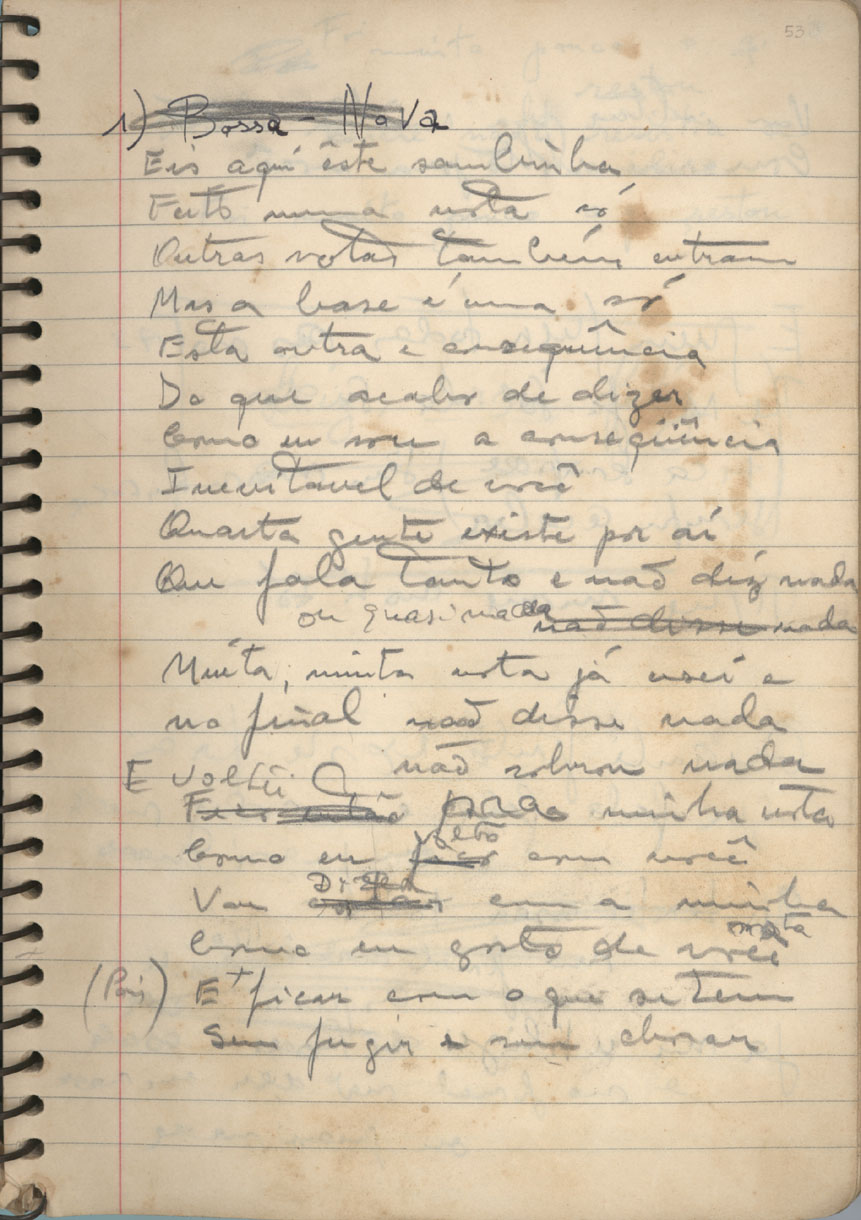 53
1) Bossa - Nova
Eis aqui êste sambinha
Feito numa nota só
Outras notas também entram
Mas a base é uma só
Esta outra e consequência
Do que acabo de dizer
Como eu sou a conseqüência
Inevitavel de você
Quanta gente existe por aí
Que fala tanto e não diz nada
ou quasi nada não disse nada
Muita, muita nota já usei e
no final não disse nada
não sobrou nada
E voltei
Fico então para minha nota
Como eu fico com você
volto
Vou contar com a minha
Dizer
nota
Como eu gosto de você
(Pois) E + ficar com o que se tem
Sem fugir e sem chorar